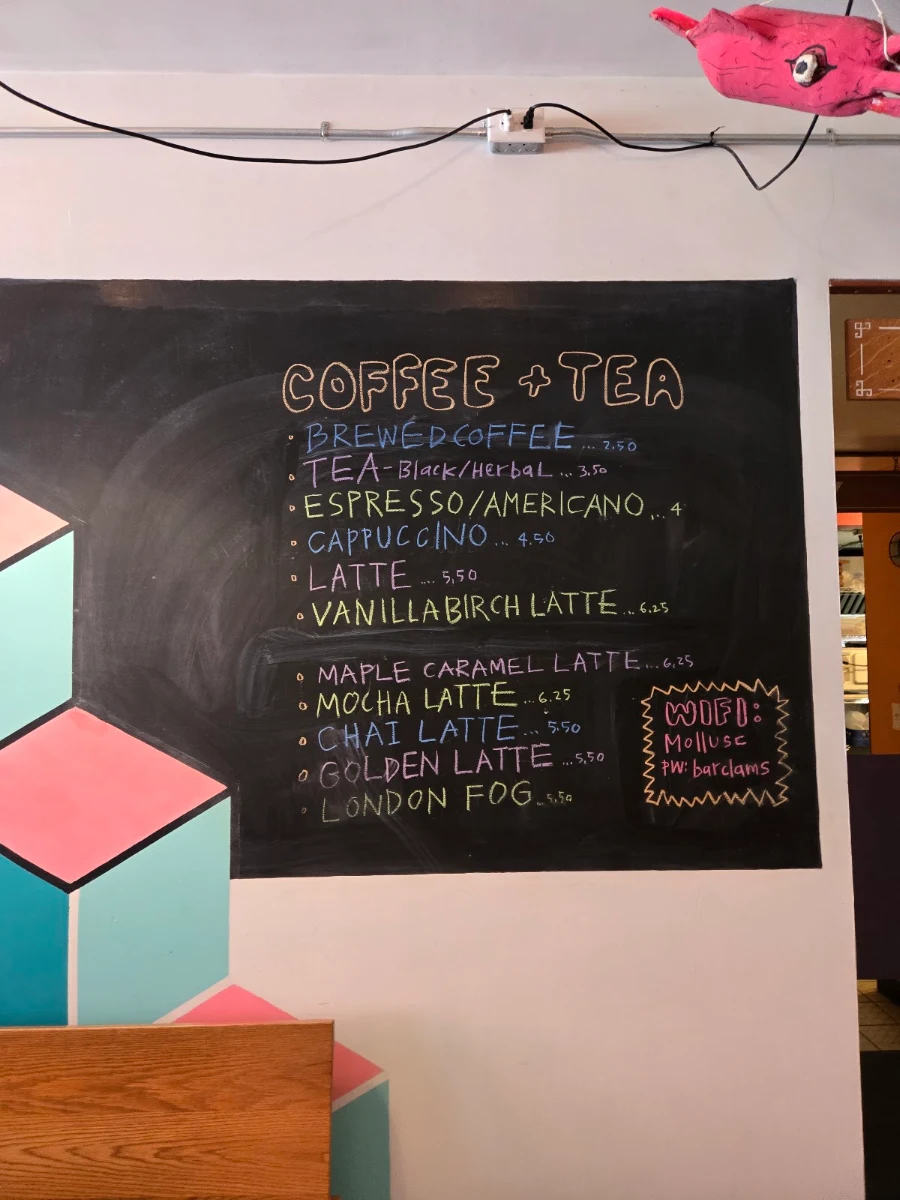 COFFEE + TEA
BREWED COFFEE ... 2.50
TEA - Black/Herbal ... 3.50
ESPRESSO/AMERICANO ... 4
CAPPUCCINO ... 4.50
LATTE ... 5.50
VANILLA BIRCH LATTE ... 6.25
MAPLE CARAMEL LATTE ... 6.25
MOCHA LATTE ... 6.25
CHAI LATTE ... 5.50
GOLDEN LATTE ... 5.50
LONDON FOG ... 5.50
WIFI:
Mollusc
PW: barclams